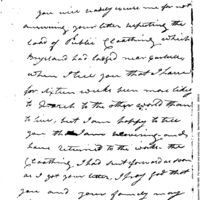 you will readily excuse me for not
answering your letter respecting the
Load of Public Cloathing which
had lodged near
when I tell you that I have
for sixteen weeks been more likely
to to the other world than
to live, but I am happy to tell
you that I am recovering and
have returned to the
Cloathing I had sent forward as soon
as I got your letter, I pray God that
you and your family may